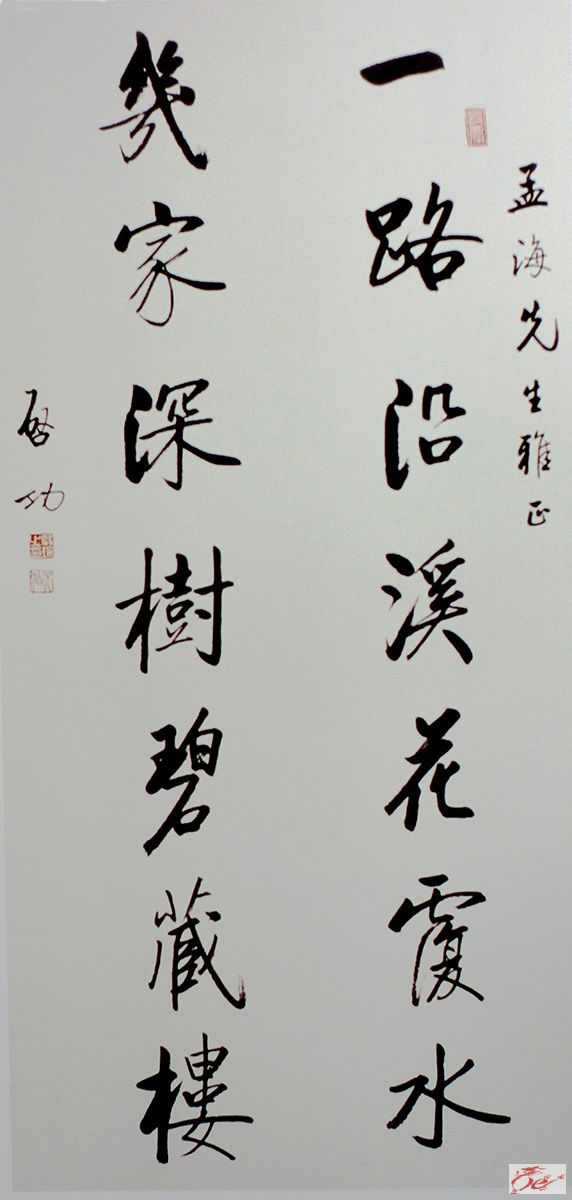 孟海先生雅正
一路沿溪花覆水
幾家深樹碧藏樓
啓功